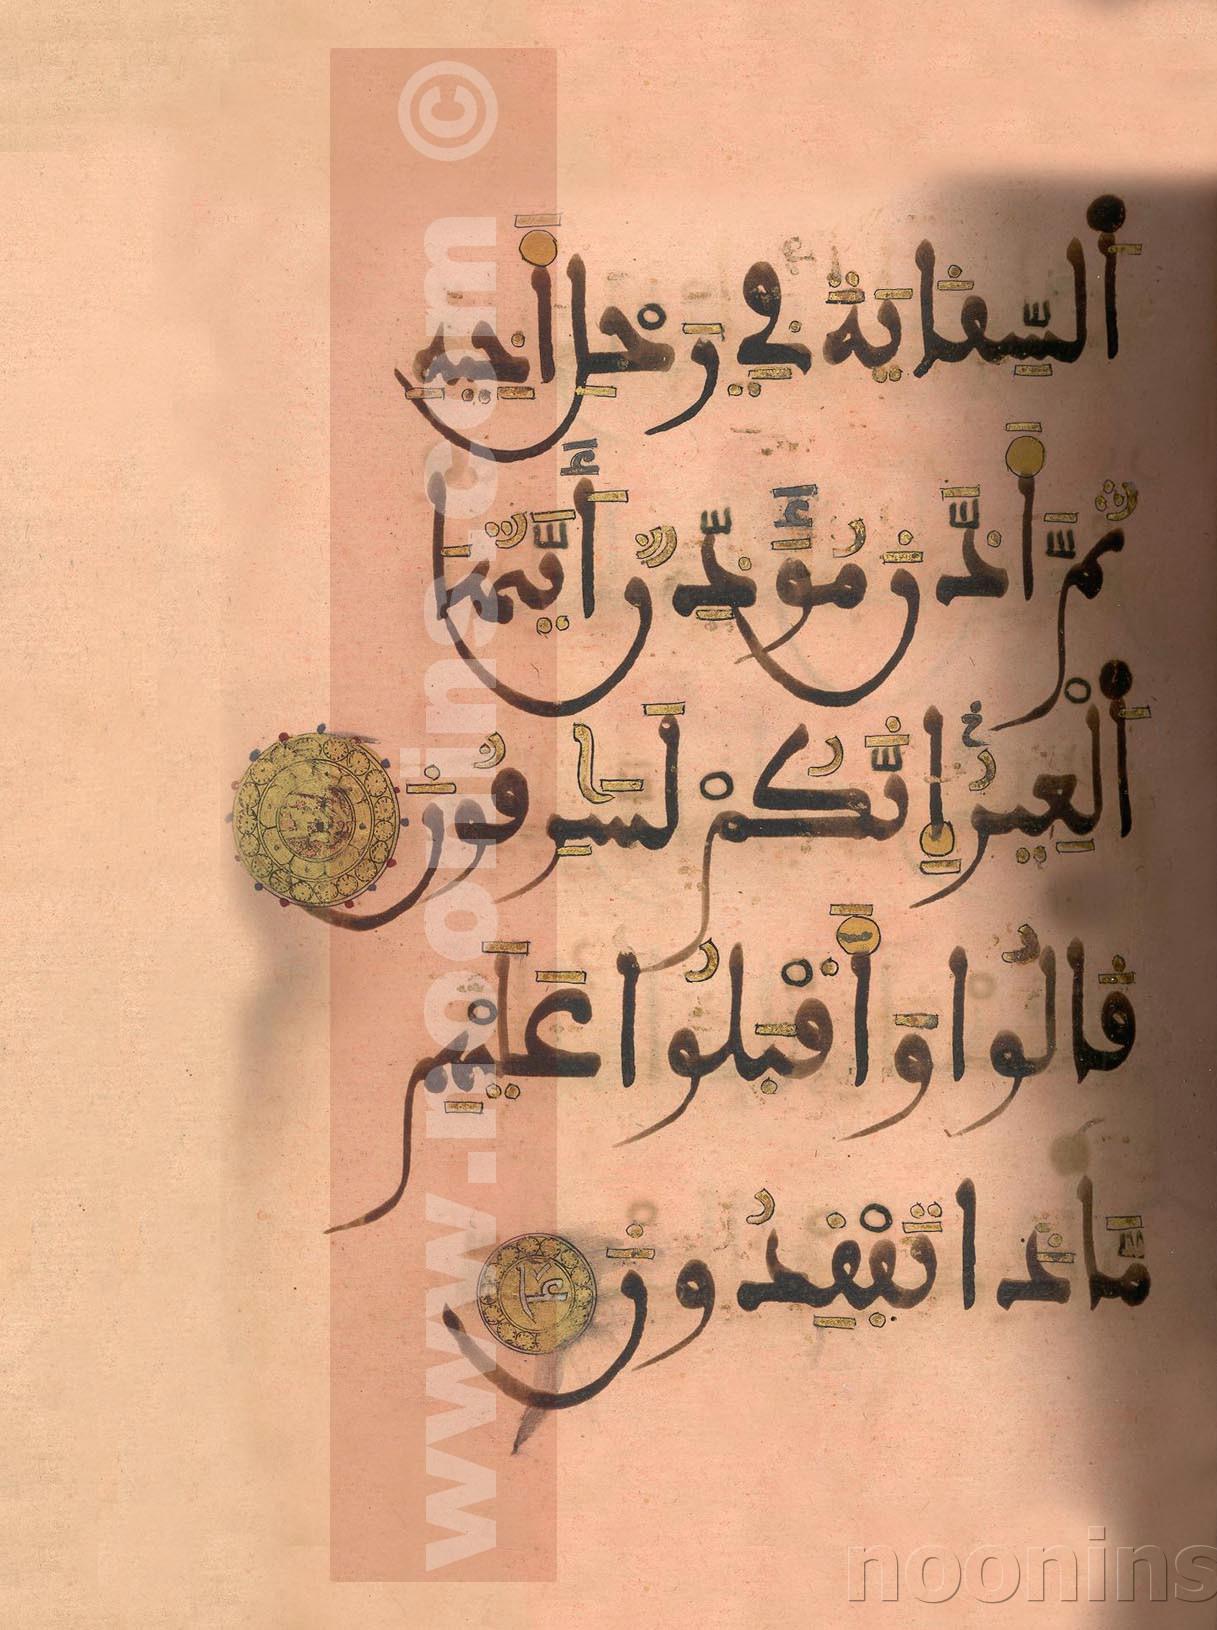 اَ۬لسِّقَايَةَ فِي رَحْلِ أَخِيهِ
ثُمَّ أَذَّنَ مُؤَذِّنٌ أَيَّتُهَا
اَ۬لْعِيرُ إِنَّكُمْ لَسَٰرِقُونَ
قَالُوا وَأَقْبَلُوا عَلَيْهِم
مَّاذَا تَفْقِدُونَ
www.noonins.com ©
noonins